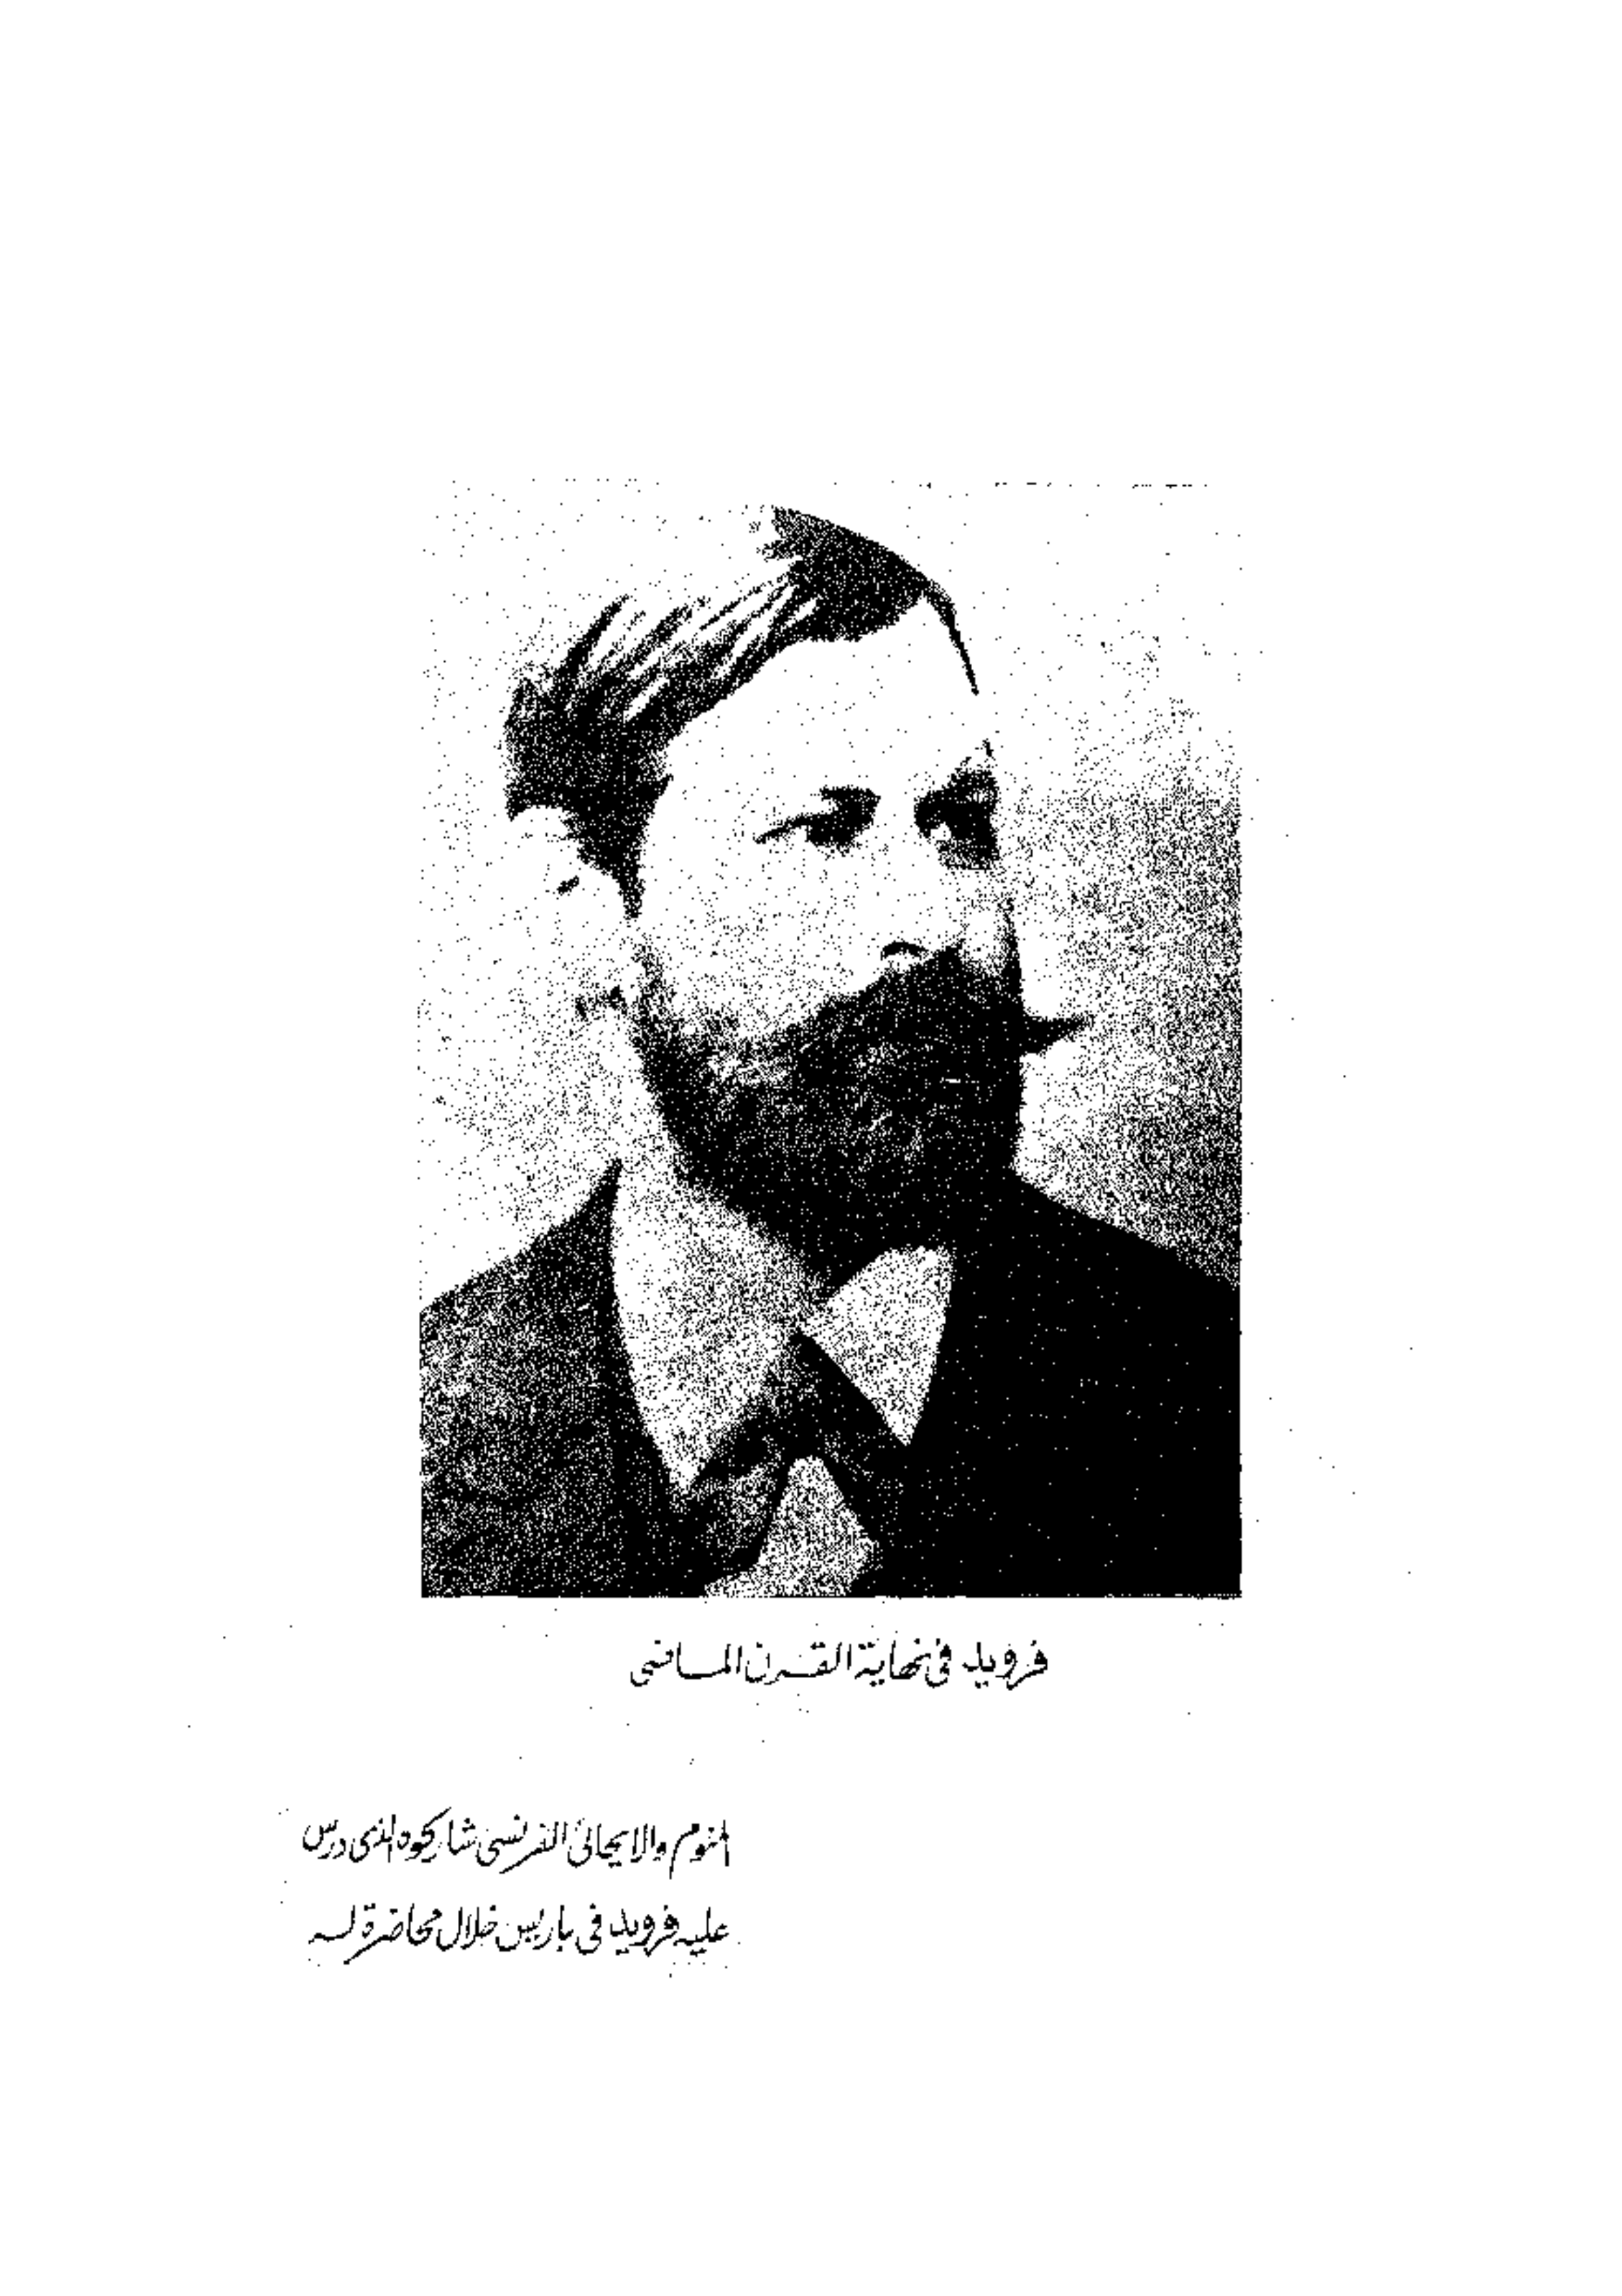 فرويد في نهاية القرن الماضي
المنوم والايحائي الفرنسي شاركوه الذي درس
عليه فرويد في باريس خلال محاضرة له